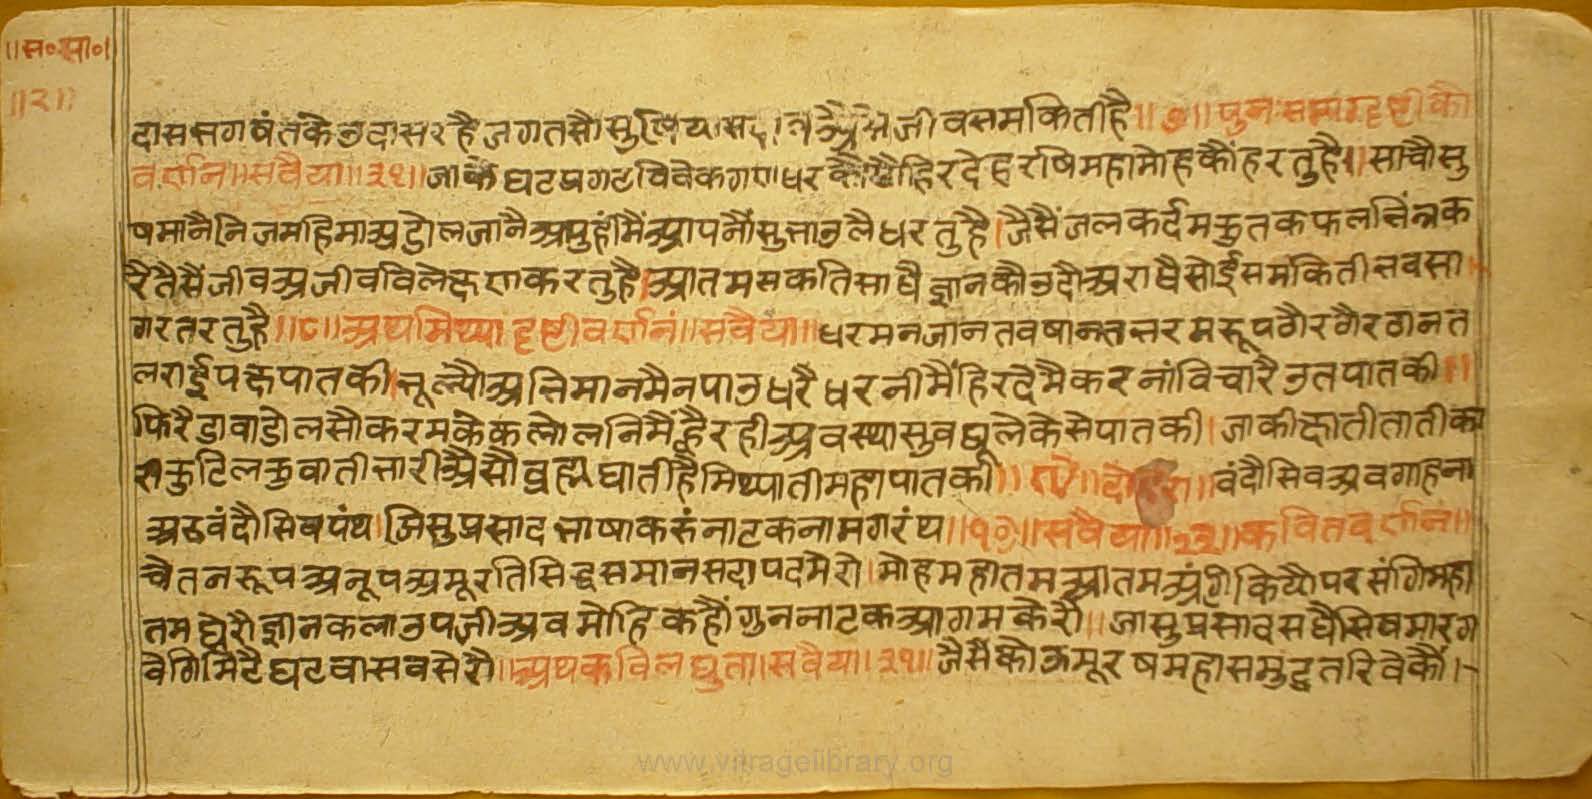 ॥स॰सा॰॥
॥२॥
दाससगषंतकैउदासरहैजगतसौसुषियासदाजीवसमकितीहै॥७॥पुनःसम्यग्दृष्टीकौ
वर्णन॥सवैया॥३१॥जाकेघटप्रगटविवेकगणधरकौसौहिरदेहरषिमहामोहकौंहरतुहै॥साचौसु
षमानैनिजमहिमाअडोलजानैआपुहीमैंआपनौंसुभाउलैधरतुहै।जैसैंजलकर्दमकुतकफलभिंनक
रैतैसैंजीवअजीवविलछणकरतुहै।आतमसकतिसाधैज्ञानकौउदौअराधैसोईसमकितीभवसा
गरतरतुहै॥८॥अथमिथ्यादृष्टीवर्णनं॥सवैया॥धरमनजानतवषानतभरमरूपठौरठौरठानत
लराईपछपातकी।भूल्यौअभिमानमैनपाउधरैधरनीमैंहिरदेमैकरनांविचारैउतपातकी॥
फिरैडावाडोलसौकरमकेकलोलनिमैंह्वैरहीअवस्थासुवघूलेकेसेपातकी।जाकीछातीतातीका
रीकुटिलकुवातीभारीऐसौब्रह्मघातीहैमिथ्यातीमहापातकी॥९॥दोहरा॥वंदौसिवअवगाहना
अरुवंदौसिवपंथ।जिसुप्रसादभाषाकरुंनाटकनामगरंथ॥१०॥सवैया॥२३॥कवितवर्णनं॥
चैतनरूपअनूपअमूरतिसिद्धसमानसदापदमेरो।मोहमहातमआतमअंगकियौपरसंगिमहा
तमघेरोज्ञानकलाउपजीअवमोहिकहौंगुननाटकआगमकेरौ॥जासुप्रसादसधैसिवमारग
वेगिमिटैघटवासवसेरौ॥अथकविलघुता।सवैया॥३१॥जैसैंकोऊमूरषमहासमुद्रतरिवेकौं।
www.vitragelibrary.org